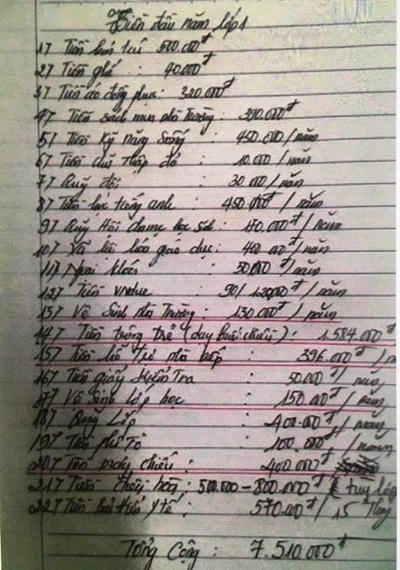 Tiền đầu năm lớp 1
1/ Tiền bán trú 500.000đ
2/ Tiền ghế : 40.000đ
3/ Tiền áo đồng phục: 320.000đ
4/ Tiền sách mua nhà trường: 390.000đ
5/ Tiền Kỹ năng Sống : 450.000/năm
6/ Tiền chữ thập đỏ : 10.000/năm
7/ Quỹ đội : 30.000/năm
8/ Tiền học tiếng anh : 450.000đ/năm
9/ Quỹ Hội : 170.000đ/năm
10/ Xã hội hóa giáo dục: 400.000đ/năm
11/ khác : 50.000đ/năm
12/ Tiền vnedu : /năm
13/ Vệ Sinh nhà Trường: 130.000đ/năm
14/ Tiền trông trẻ (dạy buổi chiều): 1.584.000đ
15/ Tiền hỗ trợ nhà bếp : 396.000đ/n
16/ Tiền giấy Kiểm Tra : 50.000đ/năm
17/ Vệ Sinh lớp học : 150.000đ/năm
18/ Quỹ Lớp : 400.000đ/năm
19/ Tiền phô Tô : 100.000đ/năm
20/ Tiền máy chiếu : 400.000đ
21/ Tiền : 500.000-800.000đ tuỳ lớp
22/ Tiền bảo hiểm Y tế : 570.000đ/15 tháng
Tổng Cộng : 7.510.000đ